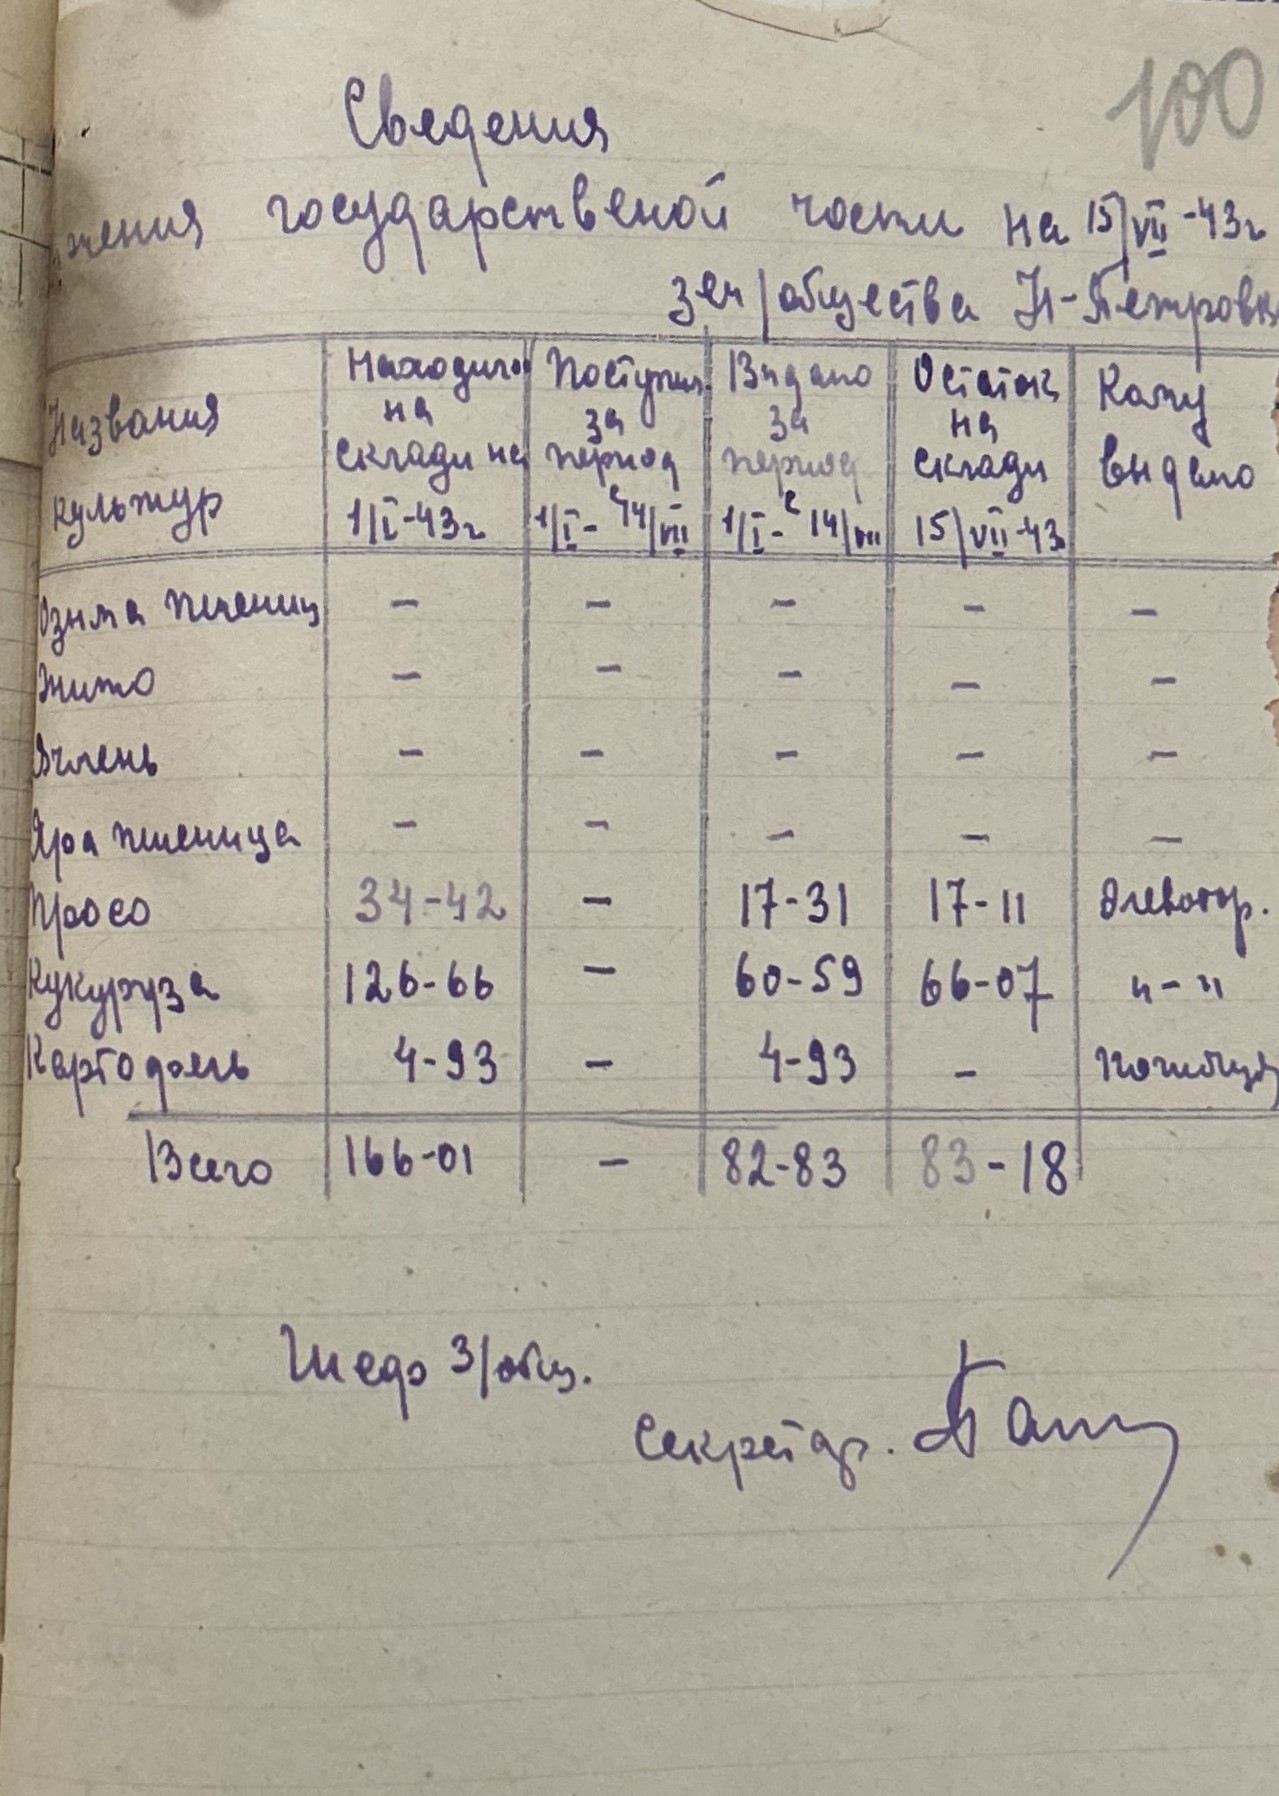 100
Сведения
жения государственой части на 15/VII-43г
зем/общества Н-Петровк
Названия культур | Находил. на склади на 1/I-43г | Поступил. за период 1/I- с 14/VII | Видано за период 1/I- с 14/VII | Остаток на склади 15/VII-43 | Кому выдано
Озыма пшениц | - | - | - | - | -
Жито | - | - | - | - | -
Ячмень | - | - | - | - | -
Яра пшеница | - | - | - | - | -
Просо | 34-42 | - | 17-31 | 17-11 | Элеватор.
Кукуруза | 126-66 | - | 60-59 | 66-07 | "-"
Картофель | 4-93 | - | 4-93 | -
Всего | 166-01 | - | 82-83 | 83-18
З/общ.
Секретар.